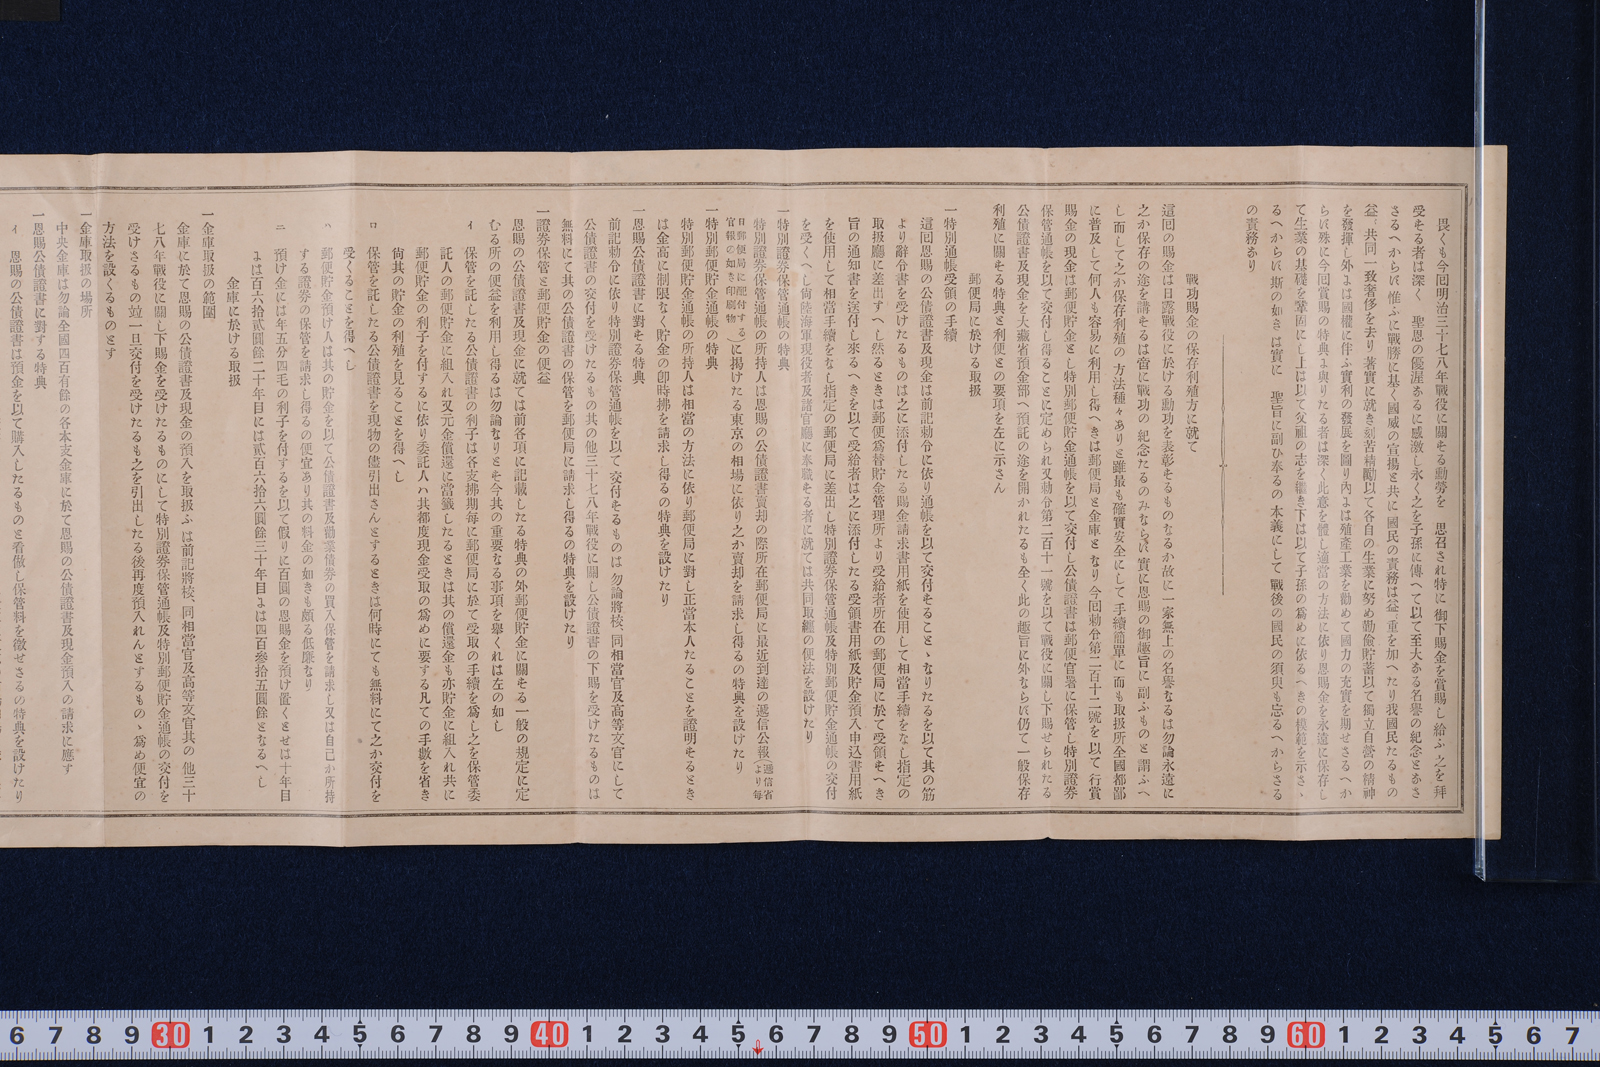 畏くも今囘明治三十七八年戰役に關そる勳勞を 思召され特に 御下賜金を賞賜し給ふ之を拜
受そる者は深く 聖恩の優渥なるに感激し永く之を子孫に傳へて以て至大なる名譽の紀念となさ
さるへからに惟ふに戰勝に基く國威の宣揚と共に國民の責務は益〻重を加へたり我國民たるもの
益〻共同一致奢侈を去り著實に就き刻苦精勵以て各自の生業に努め勤儉貯蓄以て獨立自營の精神
を發揮し外よは國權に伴ふ實利の發展を圖り內よは殖產工業を勸めて國力の充實を期せさるへか
らに殊に今囘賞賜の特典よ與りたる者は深く此意を體し適當の方法に依り恩賜金を永遠に保存し
て生業の基礎を鞏固にし上は以て父祖の志を繼き下は以て子孫の爲めに依るへきの模範を示さゝ
るへからに斯の如きは實に 聖旨に副ひ奉るの本義にして戰後の國民の須臾も忘るへからさる
の責務なり
戰功賜金の保存利殖方に就て
這囘の賜金は日露戰役に於ける勳功を表彰そるものなるか故に一家無上の名譽なるは勿論永遠に
之か保存の途を講そるは啻に戰功の紀念たるのみならに實に恩賜の御趣旨に副ふものと謂ふへ
し而して之か保存利殖の方法種々ありと雖最も確實安全にして手續簡單に而も取扱所全國都鄙
に普及して何人も容易に利用し得へきは郵便局と金庫となり今囘勅令第二百十二號を以て行賞
賜金の現金は郵便貯金とし特別郵便貯金通帳を以て交付し公債證書は郵便官署に保管し特別證券
保管通帳を以て交付し得ることに定められ又勅令第二百十一號を以て戰役に關し下賜せられたる
公債證書及現金を大藏省預金部へ預託の途を開かれたるも全く此の趣旨に外ならに仍て一般保存
利殖に關そる特典と利便との要項を左に示さん
郵便局に於ける取扱
一特別通帳受領の手續
這囘恩賜の公債證書及現金は前記勅令に依り通帳を以て交付そることゝなりたるを以て其の筋
より辭令書を受けたるものは之に添付したる賜金請求書用紙を使用して相當手續をなし指定の
取扱廳に差出すへし然るときは郵便爲替貯金管理所より受給者所在の郵便局に於て受領そへき
旨の通知書を送付し來るへきを以て受給者は之に添付したる受領書用紙及貯金預入申込書用紙
を使用して相當手續をなし指定の郵便局に差出し特別證券保管通帳及特別郵便貯金通帳の交付
を受くへし尙陸海軍現役者及諸官廳に奉職そる者に就ては共同取纒の便法を設けたり
一特別證券保管通帳の特典
特別證券保管通帳の所持人は恩賜の公債證書賣却の際所在郵便局に最近到達の遞信公報(遞信省より每
日郵便局に配付する官報の如き印刷物)に揭けたる東京の相場に依り之か賣却を請求し得るの特典を設けたり
一特別郵便貯金通帳の特典
特別郵便貯金通帳の所持人は相當の方法に依り郵便局に對し正當本人たることを證明そるとき
は金高に制限なく貯金の卽時拂を請求し得るの特典を設けたり
一恩賜公債證書に對そる特典
前記勅令に依り特別證券保管通帳を以て交付そるものは勿論將校、同相當官及高等文官にして
公債證書の交付を受けたるもの其の他三十七八年戰役に關し公債證書の下賜を受けたるものは
無料にて其の公債證書の保管を郵便局に請求し得るの特典を設けたり
一證券保管と郵便貯金の便益
恩賜の公債證書及現金に就ては前各項に記載したる特典の外郵便貯金に關そる一般の規定に定
むる所の便益を利用し得るは勿論なりと今其の重要なる事項を擧くれは左の如し
イ 保管を託したる公債證書の利子は各支拂期每に郵便局に於て受取の手續を爲し之を保管委
託人の郵便貯金に組入れ又元金償還に當籤したるときは其の償還金も亦貯金に組入れ共に
郵便貯金の利子を付するに依り委託人ハ其都度現金受取の爲めに要する凡ての手數を省き
尙其の貯金の利殖を見ることを得へし
ロ 保管を託したる公債證書を現物の儘引出さんとするときは何時にても無料にて之か交付を
受くることを得へし
ハ 郵便貯金預け人は其の貯金を以て公債證書及勸業債券の買入保管を請求し又は自己か所持
する證券の保管を請求し得るの便宜あり其の料金の如きも頗る低廉なり
ニ 預け金には年五分四毛の利子を付するを以て假りに百圓の恩賜金を預け置くとせは十年目
よは百六拾貳圓餘二十年目には貳百六拾六圓餘三十年目よは四百參拾五圓餘となるへし
金庫に於ける取扱
一金庫取扱の範圍
金庫に於て恩賜の公債證書及現金の預入を取扱ふは前記將校、同相當官及高等文官其の他三十
七八年戰役に關し下賜金を受けたるものにして特別證券保管通帳及特別郵便貯金通帳の交付を
受けさるもの竝一旦交付を受けたるも之を引出したる後再度預入れんとするものゝ爲め便宜の
方法を設くるものとす
一金庫取扱の場所
中央金庫は勿論全國四百有餘の各本支金庫に於て恩賜の公債證書及現金預入の請求に應す
一恩賜公債證書に對する特典
イ 恩賜の公債證書は預金を以て購入したるものと看做し保管料を徵せさるの特典を設けたり
6 7 8 9 30 1 2 3 4 5 6 7 8 9 40 1 2 3 4 5 6 7 8 9 50 1 2 3 4 5 6 7 8 9 60 1 2 3 4 5 6 7